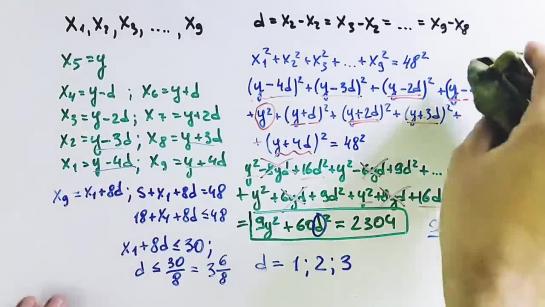 x₁, x₂, x₃, ...., x₉
d = x₂-x₂ = x₃-x₂ = ... = x₉-x₈
x₅=y
x₄=y-d ; x₆=y+d
x₃=y-2d ; x₇=y+2d
x₂=y-3d ; x₈=y+3d
x₁=y-4d ; x₉=y+4d
x₉=x₁+8d ; s+x₁+8d=48
18+x₁+8d≤48
x₁+8d≤30;
d≤30/8=3 6/8
x₁²+x₂²+x₃²+...+x₉²=48²
(y-4d)²+(y-3d)²+(y-2d)²+(y-
+y²+(y+d)²+(y+2d)²+(y+3d)²+
+(y+4d)²=48²
y²-8yd+16d²+y²-6yd+9d²+...
+y²+6yd+9d²+y²+8yd+16d
=9y²+60d²=2304
d=1;2;3